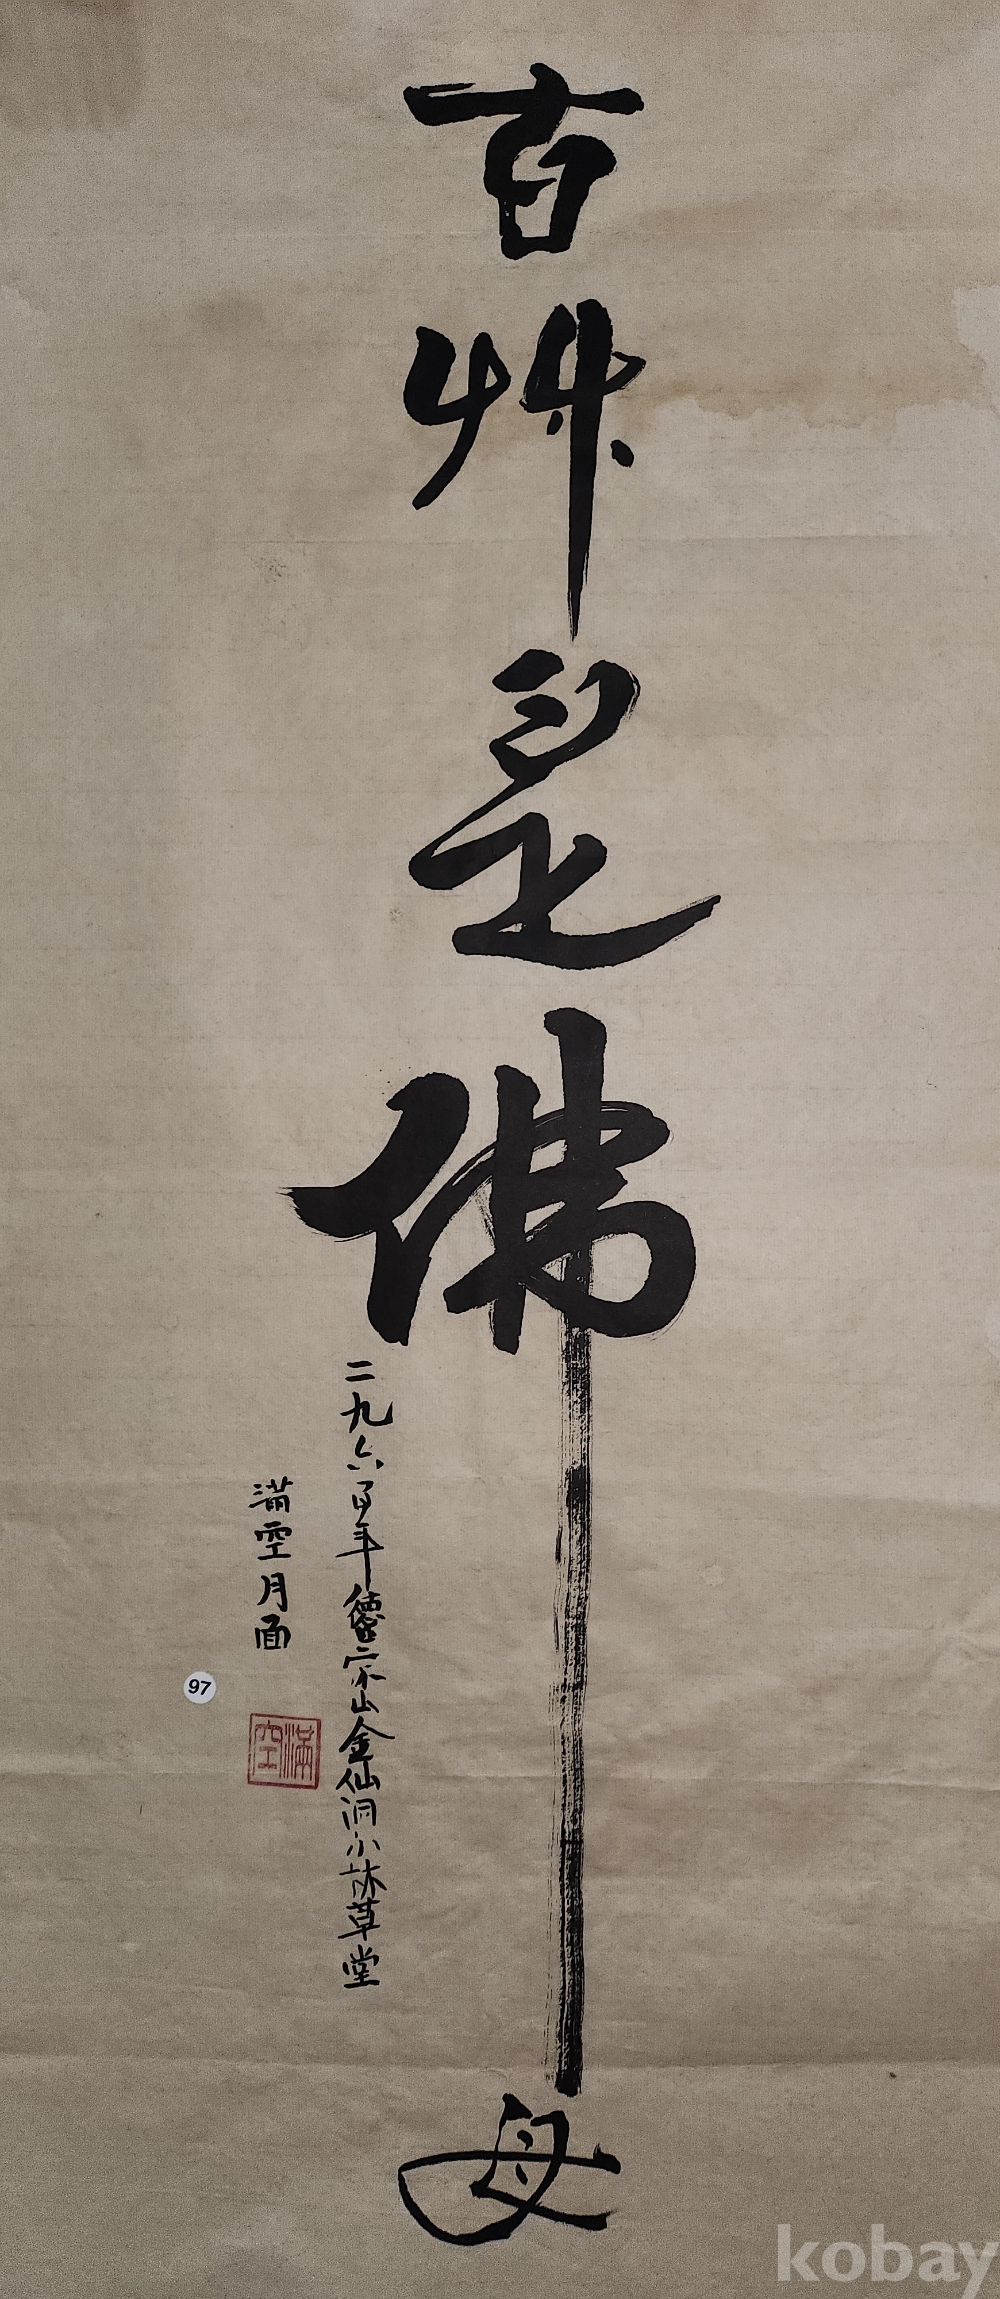 百艸是佛母
二九六年德崇山金仙洞小林草堂
滿空月面
滿空
97
kobay